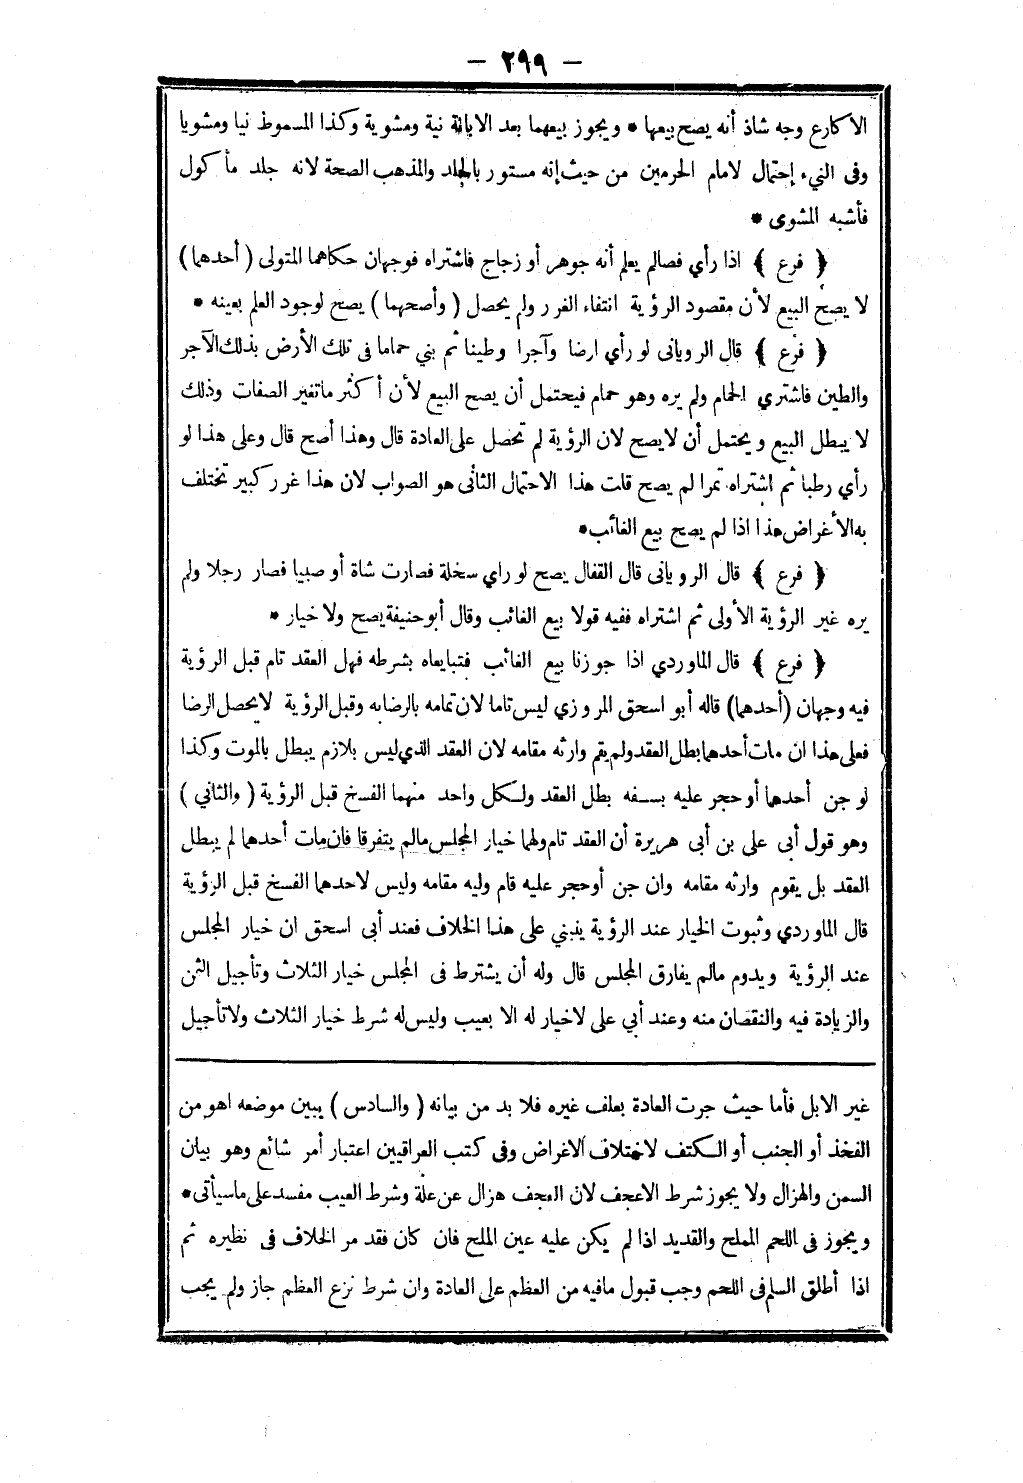 - ٢٩٩ -
الاكارع وجه شاذ أنه يصح بيعها * ويجوز بيعهما بعد الابانة نية ومشوية وكذا المسموط نيا ومشويا
وفى النيء إحتمال لامام الحرمين من حيث إنه مستور بالجلد والمذهب الصحة لانه جلد مأكول
فأشبه المشوى *
﴿ فرع ﴾ اذا رأي فصالم يعلم أنه جوهر أو زجاج فاشتراه فوجهان حكاهما المتولى ( أحدهما )
لا يصح البيع لأن مقصود الرؤية انتفاء الغرر ولم يحصل ( وأصحهما ) يصح لوجود العلم بعينه *
﴿ فرع ﴾ قال الرويانى لو رأي ارضا وآجرا وطينا ثم بني حماما فى تلك الأرض بذلك الآجر
والطين فاشتري الحمام ولم يره وهو حمام فيحتمل أن يصح البيع لأن أكثر ماتغير الصفات وذلك
لا يبطل البيع ويحتمل أن لايصح لان الرؤية لم تحصل على العادة قال وهذا أصح قال وعلى هذا لو
رأي رطبا ثم اشتراه تمرا لم يصح قلت هذا الاحتمال الثانى هو الصواب لان هذا غرر كبير تختلف
به الأغراض هذا اذا لم يصح بيع الغائب *
﴿ فرع ﴾ قال الرويانى قال القفال يصح لو راي سخلة فصارت شاة أو صبيا فصار رجلا ولم
يره غير الرؤية الأولى ثم اشتراه ففيه قولا بيع الغائب وقال أبو حنيفة يصح ولا خيار *
﴿ فرع ﴾ قال الماوردي اذا جوزنا بيع الغائب فتبايعاه بشرطه فهل العقد تام قبل الرؤية
فيه وجهان (أحدهما) قاله أبو اسحق المروزي ليس تاما لان تمامه بالرضا به وقبل الرؤية لايحصل الرضا
فعلى هذا ان مات أحدهما بطل العقد ولم يقم وارثه مقامه لان العقد الذي ليس بلازم يبطل بالموت وكذا
لو جن أحدهما أو حجر عليه بسفه بطل العقد ولكل واحد منهما الفسخ قبل الرؤية ( والثاني )
وهو قول أبى على بن أبى هريرة أن العقد تام ولهما خيار المجلس مالم يتفرقا فان مات أحدهما لم يبطل
العقد بل يقوم وارثه مقامه وان جن أو حجر عليه قام وليه مقامه وليس لاحدهما الفسخ قبل الرؤية
قال الماوردي وثبوت الخيار عند الرؤية ينبني على هذا الخلاف فعند أبى اسحق ان خيار المجلس
عند الرؤية ويدوم مالم يفارق المجلس قال وله أن يشترط فى المجلس خيار الثلاث وتأجيل الثمن
والزيادة فيه والنقصان منه وعند أبي على لاخيار له الا بعيب وليس له شرط خيار الثلاث ولا تأجيل
غير الابل فأما حيث جرت العادة بعلف غيره فلا بد من بيانه ( والسادس ) يبين موضعه اهو من
الفخذ أو الجنب أو الكتف لاختلاف الاغراض وفى كتب العراقيين اعتبار أمر شائع وهو بيان
السمن والهزال ولا يجوز شرط الاعجف لان العجف هزال عن علة وشرط العيب مفسد على ماسيأتى *
ويجوز فى اللحم المملح والقديد اذا لم يكن عليه عين الملح فان كان فقد مر الخلاف فى نظيره ثم
اذا أطلق السلم فى اللحم وجب قبول مافيه من العظم على العادة وان شرط نزع العظم جاز ولم يجب